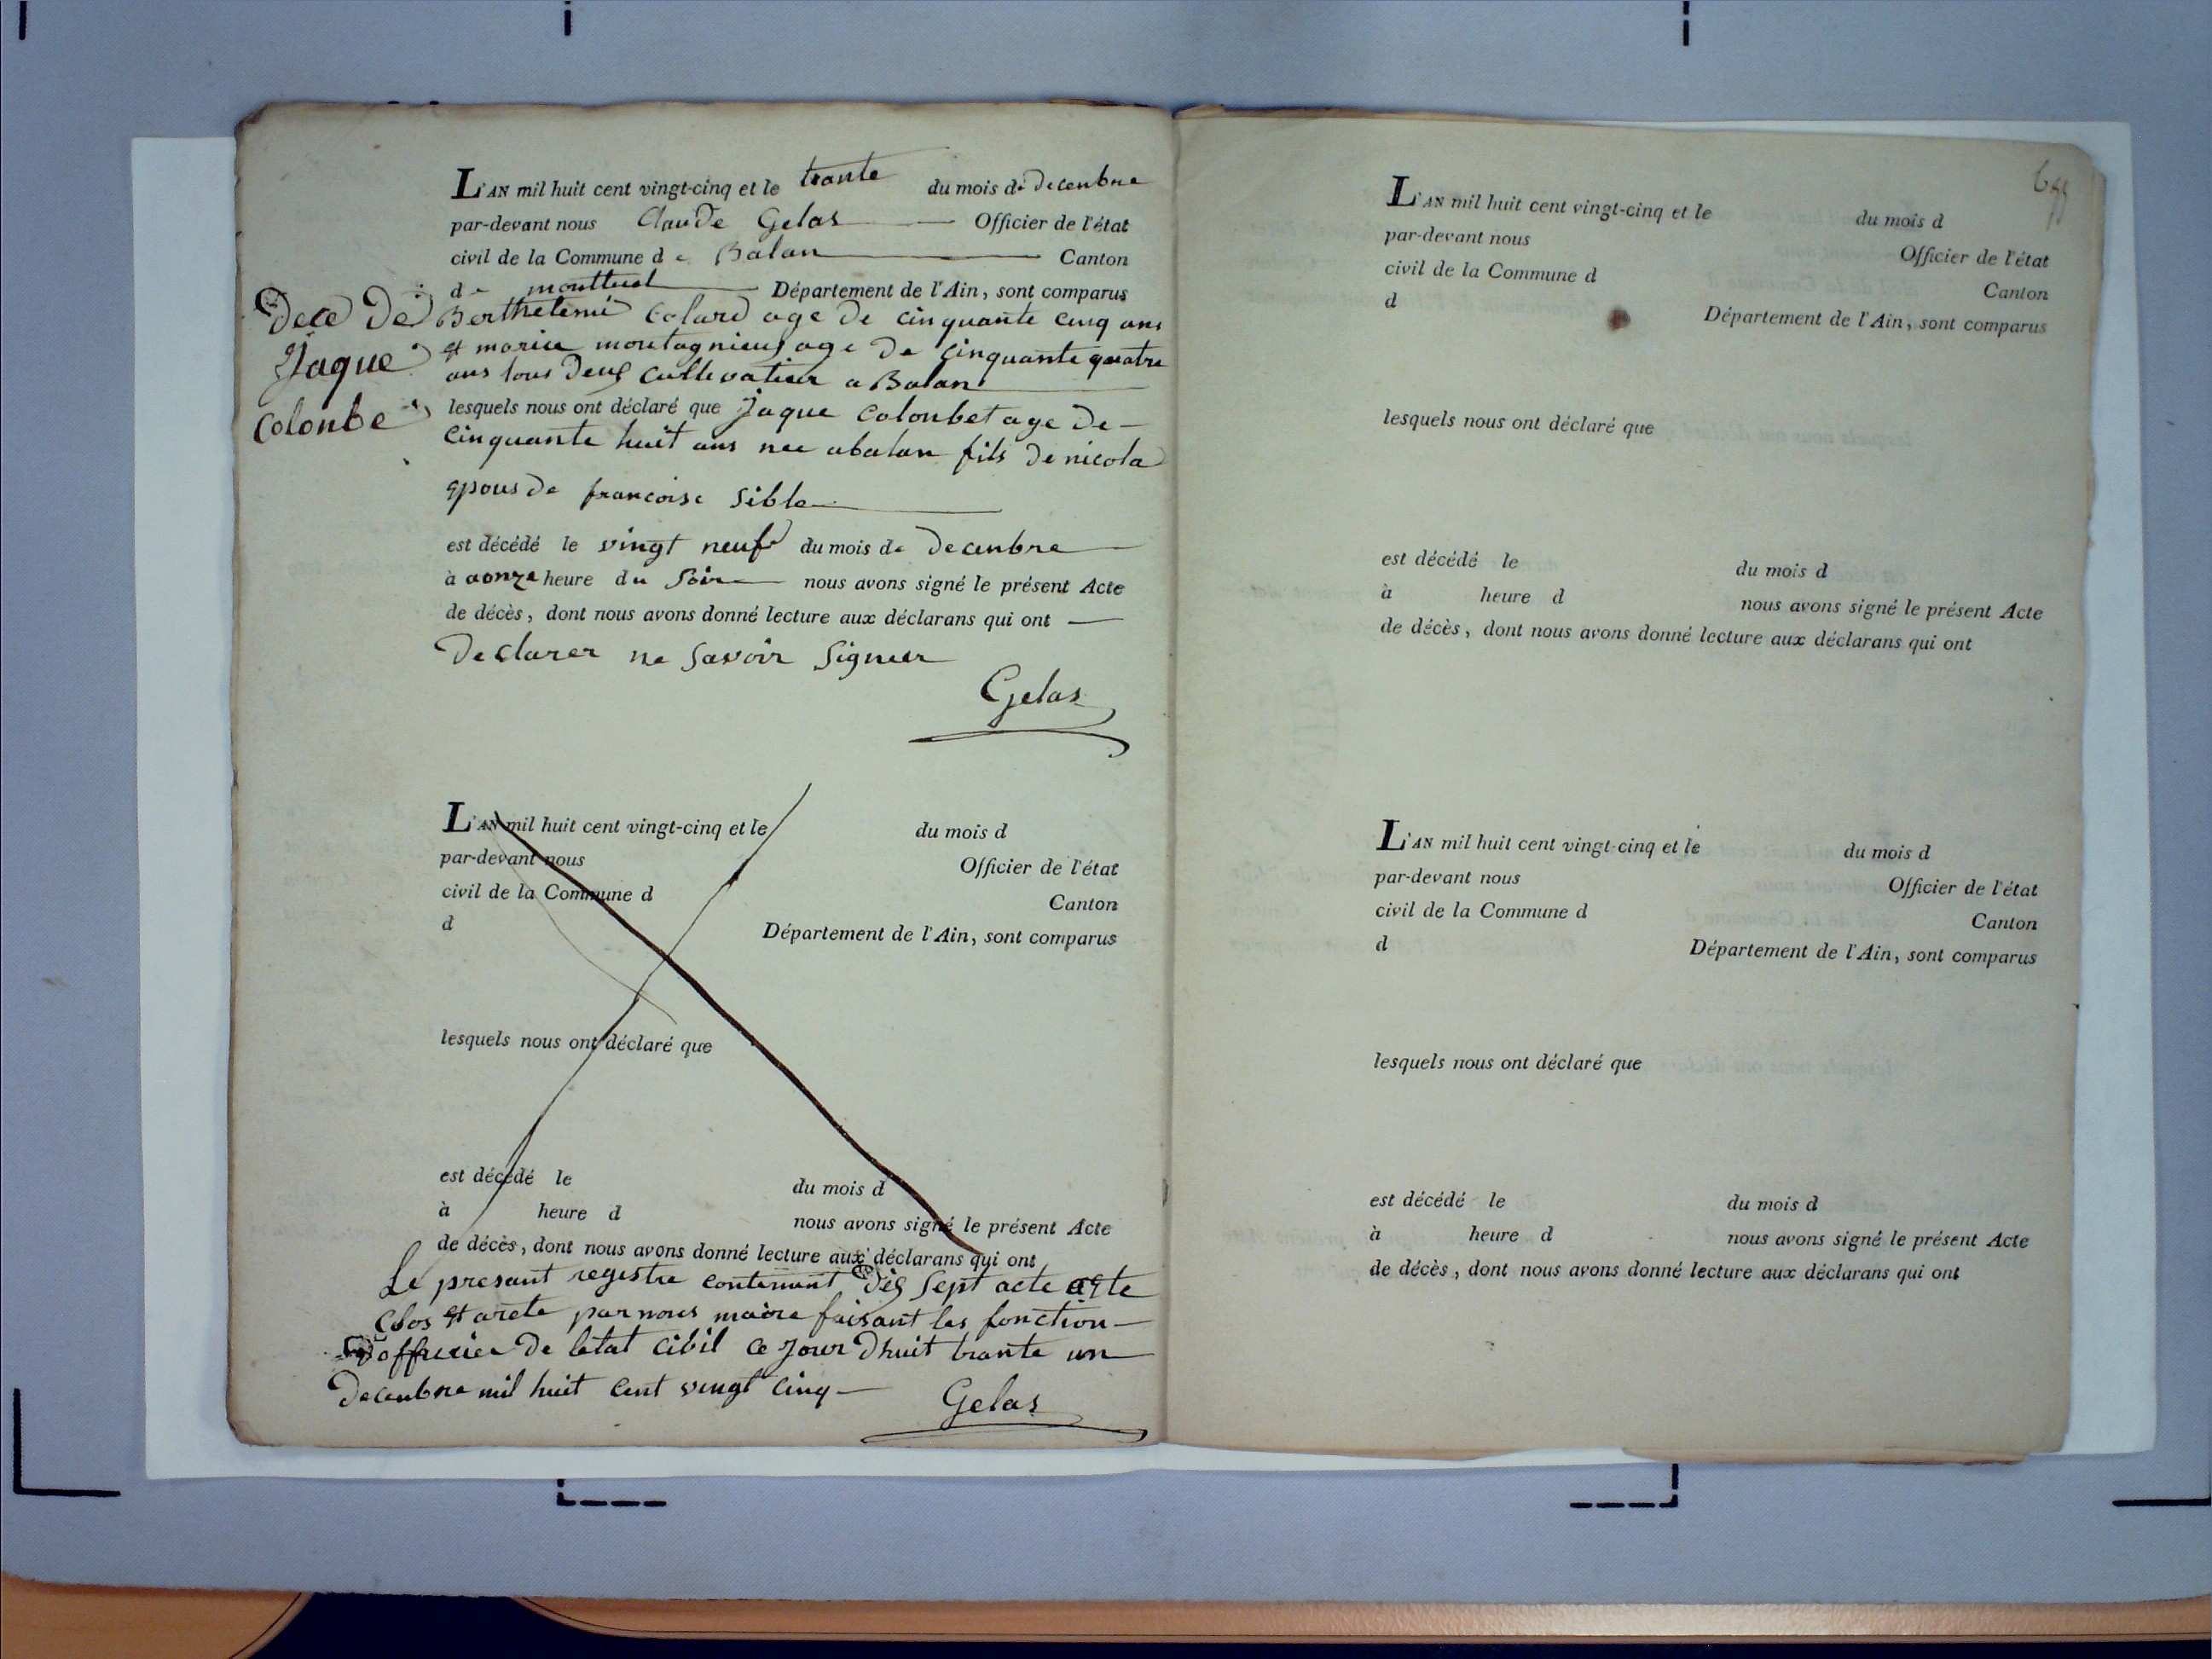 L'AN mil huit cent vingt-cinq et le trante du mois de decenbre
par-devant nous Claude Gelas Officier de l'état
civil de la Commune de Balan Canton
de montluel Département de l'Ain, sont comparus
Dece De
Jaque
Colonbe
Berthelemi Colard age De cinquante cinq ans
et morice montagnieux age De cinquante quatre
ans tous Deux Cultivatieur a Balan
lesquels nous ont déclaré que jaque Colonbet age De
cinquante huit ans nee abalan fils De nicola
epous De francoise Sible
est décédé le vingt neuf du mois de decenbre
à aonze heure du Soir nous avons signé le présent Acte
de décès, dont nous avons donné lecture aux déclarans qui ont
Declarer ne Savoir Signier
Gelas
L'AN mil huit cent vingt-cinq et le du mois d
par-devant nous Officier de l'état
civil de la Commune d Canton
d Département de l'Ain, sont comparus
lesquels nous ont déclaré que
est décédé le du mois d
à heure d nous avons signé le présent Acte
de décès, dont nous avons donné lecture aux déclarans qui ont
Le presant registre contenant Dix Sept acte
Clos et arete par nous maire faisant les fonction
De letat Cibil Ce jour Dhuit trante un
Decenbre mil huit Cent vingt Cinq
Gelas
L'AN mil huit cent vingt-cinq et le du mois d
par-devant nous Officier de l'état
civil de la Commune d Canton
d Département de l'Ain, sont comparus
lesquels nous ont déclaré que
est décédé le du mois d
à heure d nous avons signé le présent Acte
de décès, dont nous avons donné lecture aux déclarans qui ont
L'AN mil huit cent vingt-cinq et le du mois d
par-devant nous Officier de l'état
civil de la Commune d Canton
d Département de l'Ain, sont comparus
lesquels nous ont déclaré que
est décédé le du mois d
à heure d nous avons signé le présent Acte
de décès, dont nous avons donné lecture aux déclarans qui ont